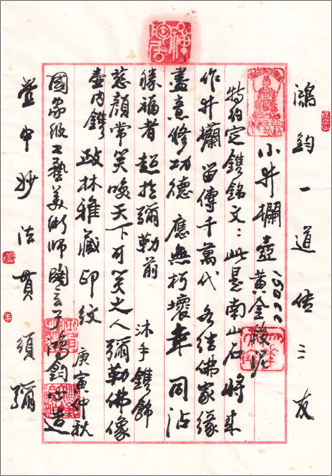 鴻鈞一道傳三友
小井欄壺 黃金段泥 150cc
特約定鐫銘文：此是南山石 將來
作井欄 留傳千萬代 各結佛家緣
盡意修功德 應無朽壞年 同沾
勝福者 超於彌勒前 沐手鐫飾
慈顏常笑咲天下可笑之人 彌勒佛像
壺內鐫 政林雅藏印紋 庚寅仲秋
國家級工藝美術師 鴻鈞心造
壺中妙法貫須彌